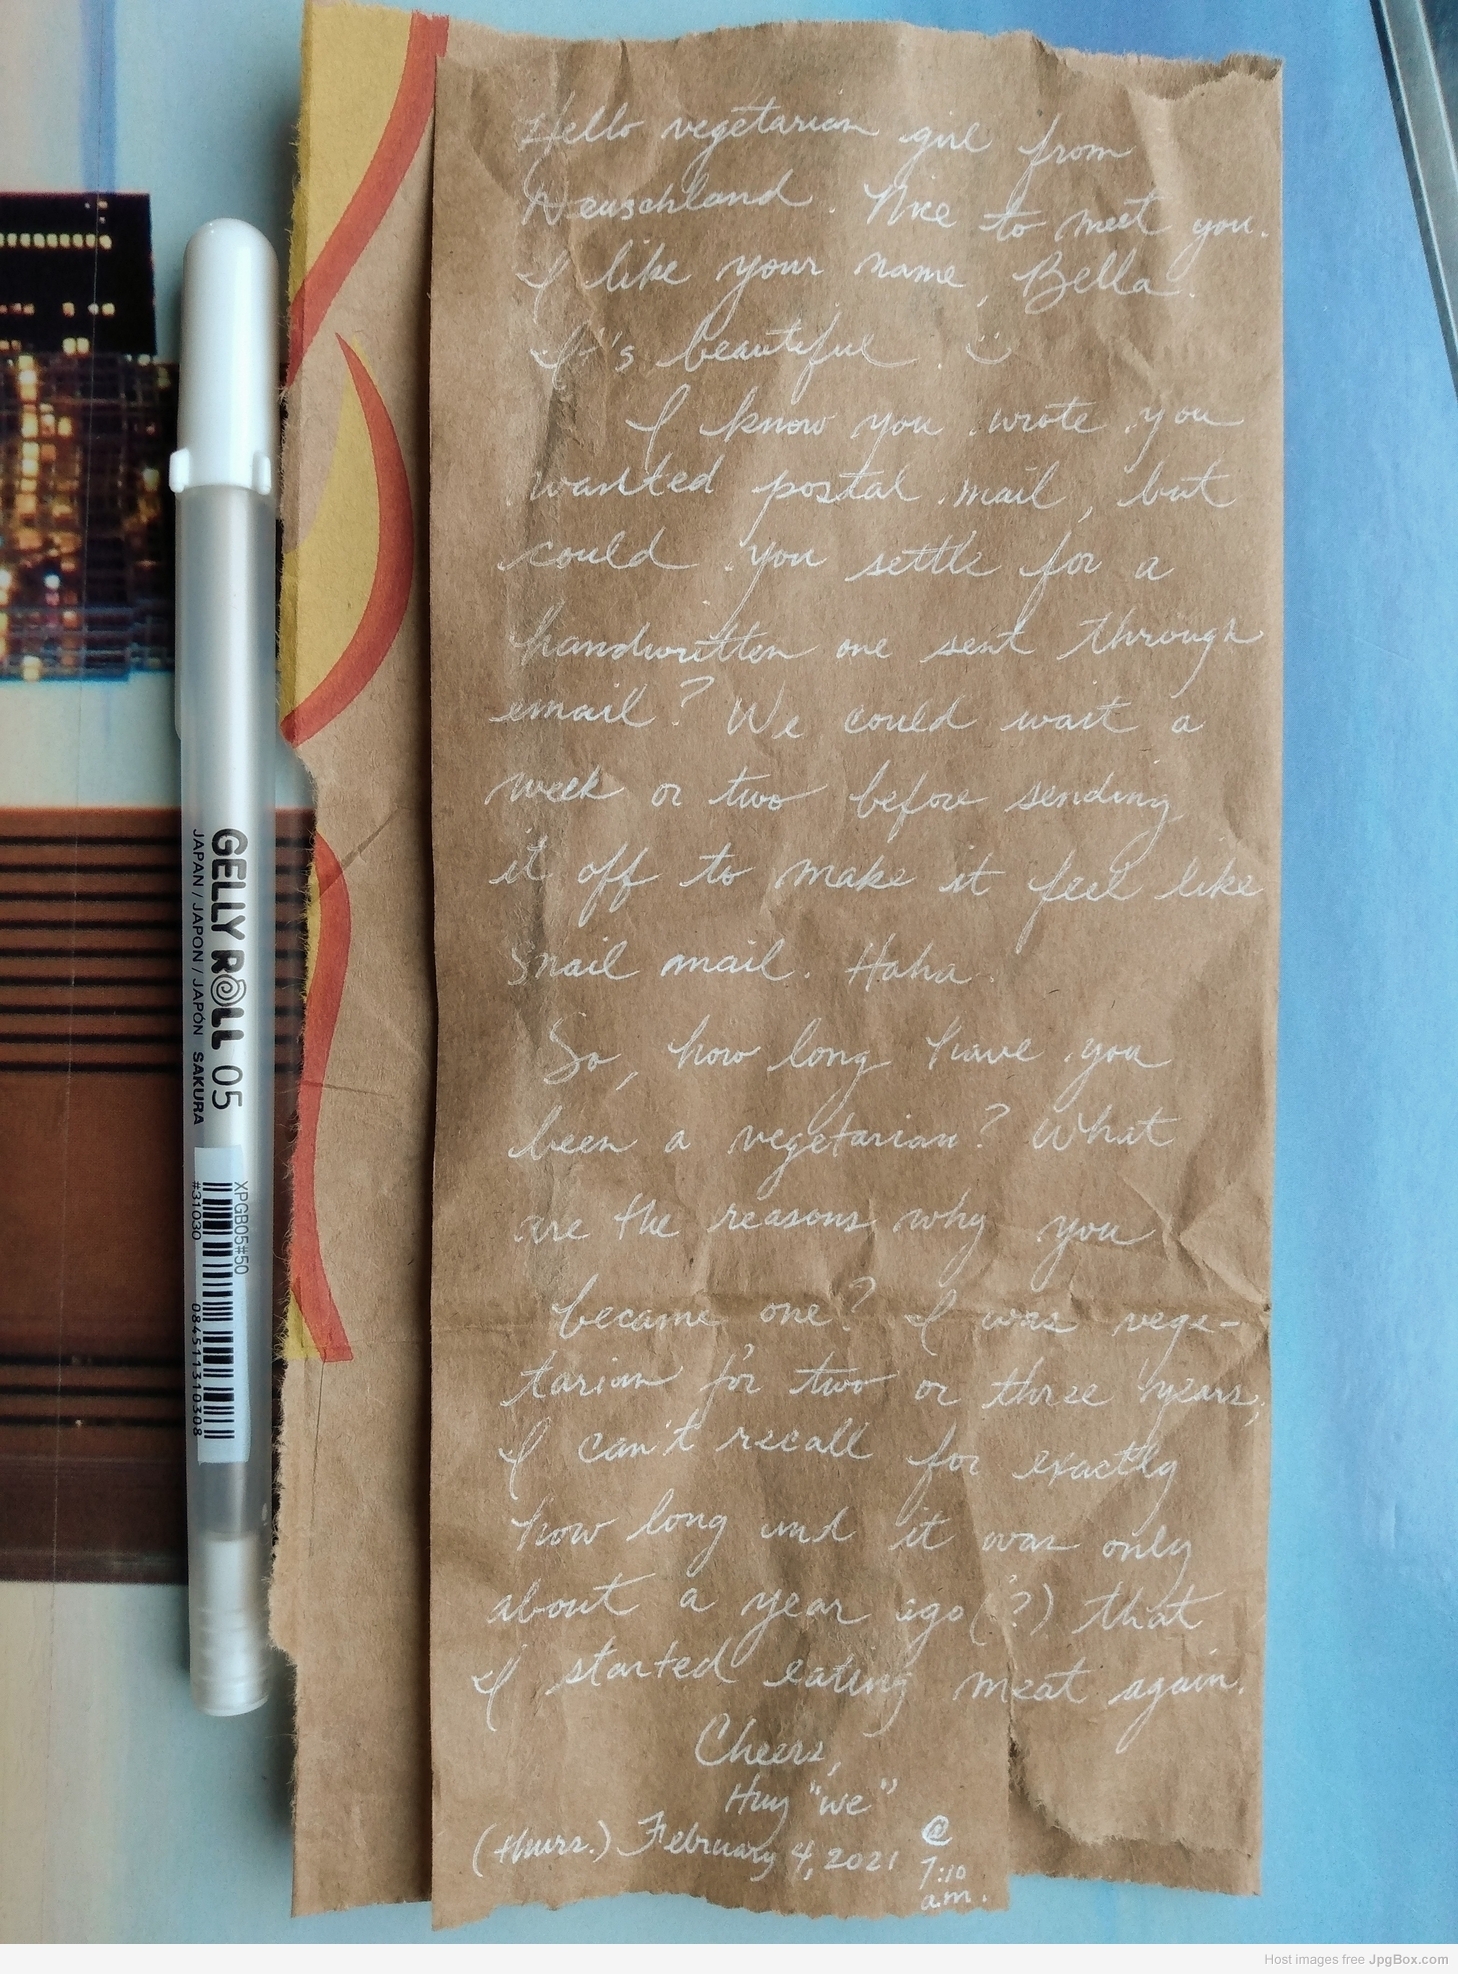 Hello vegetarian girl from
Deuschland. Nice to meet you.
I like your name, Bella.
It's beautiful. :)
I know you wrote you
wanted postal mail, but
could you settle for a
handwritten one sent through
email? We could wait a
week or two before sending
it off to make it feel like
snail mail. Haha.
So, how long have you
been a vegetarian? What
are the reasons why you
became one? I was vege-
tarian for two or three years;
I can't recall for exactly
how long and it was only
about a year ago (?) that
I started eating meat again.
Cheers,
Huy "we"
(thurs.) February 4, 2021 @
7:10
a.m.
GELLY ROLL 05
JAPAN / JAPON / JAPÓN SAKURA
XPGB05#50
#31030
084511310308
Host images free JpgBox.com